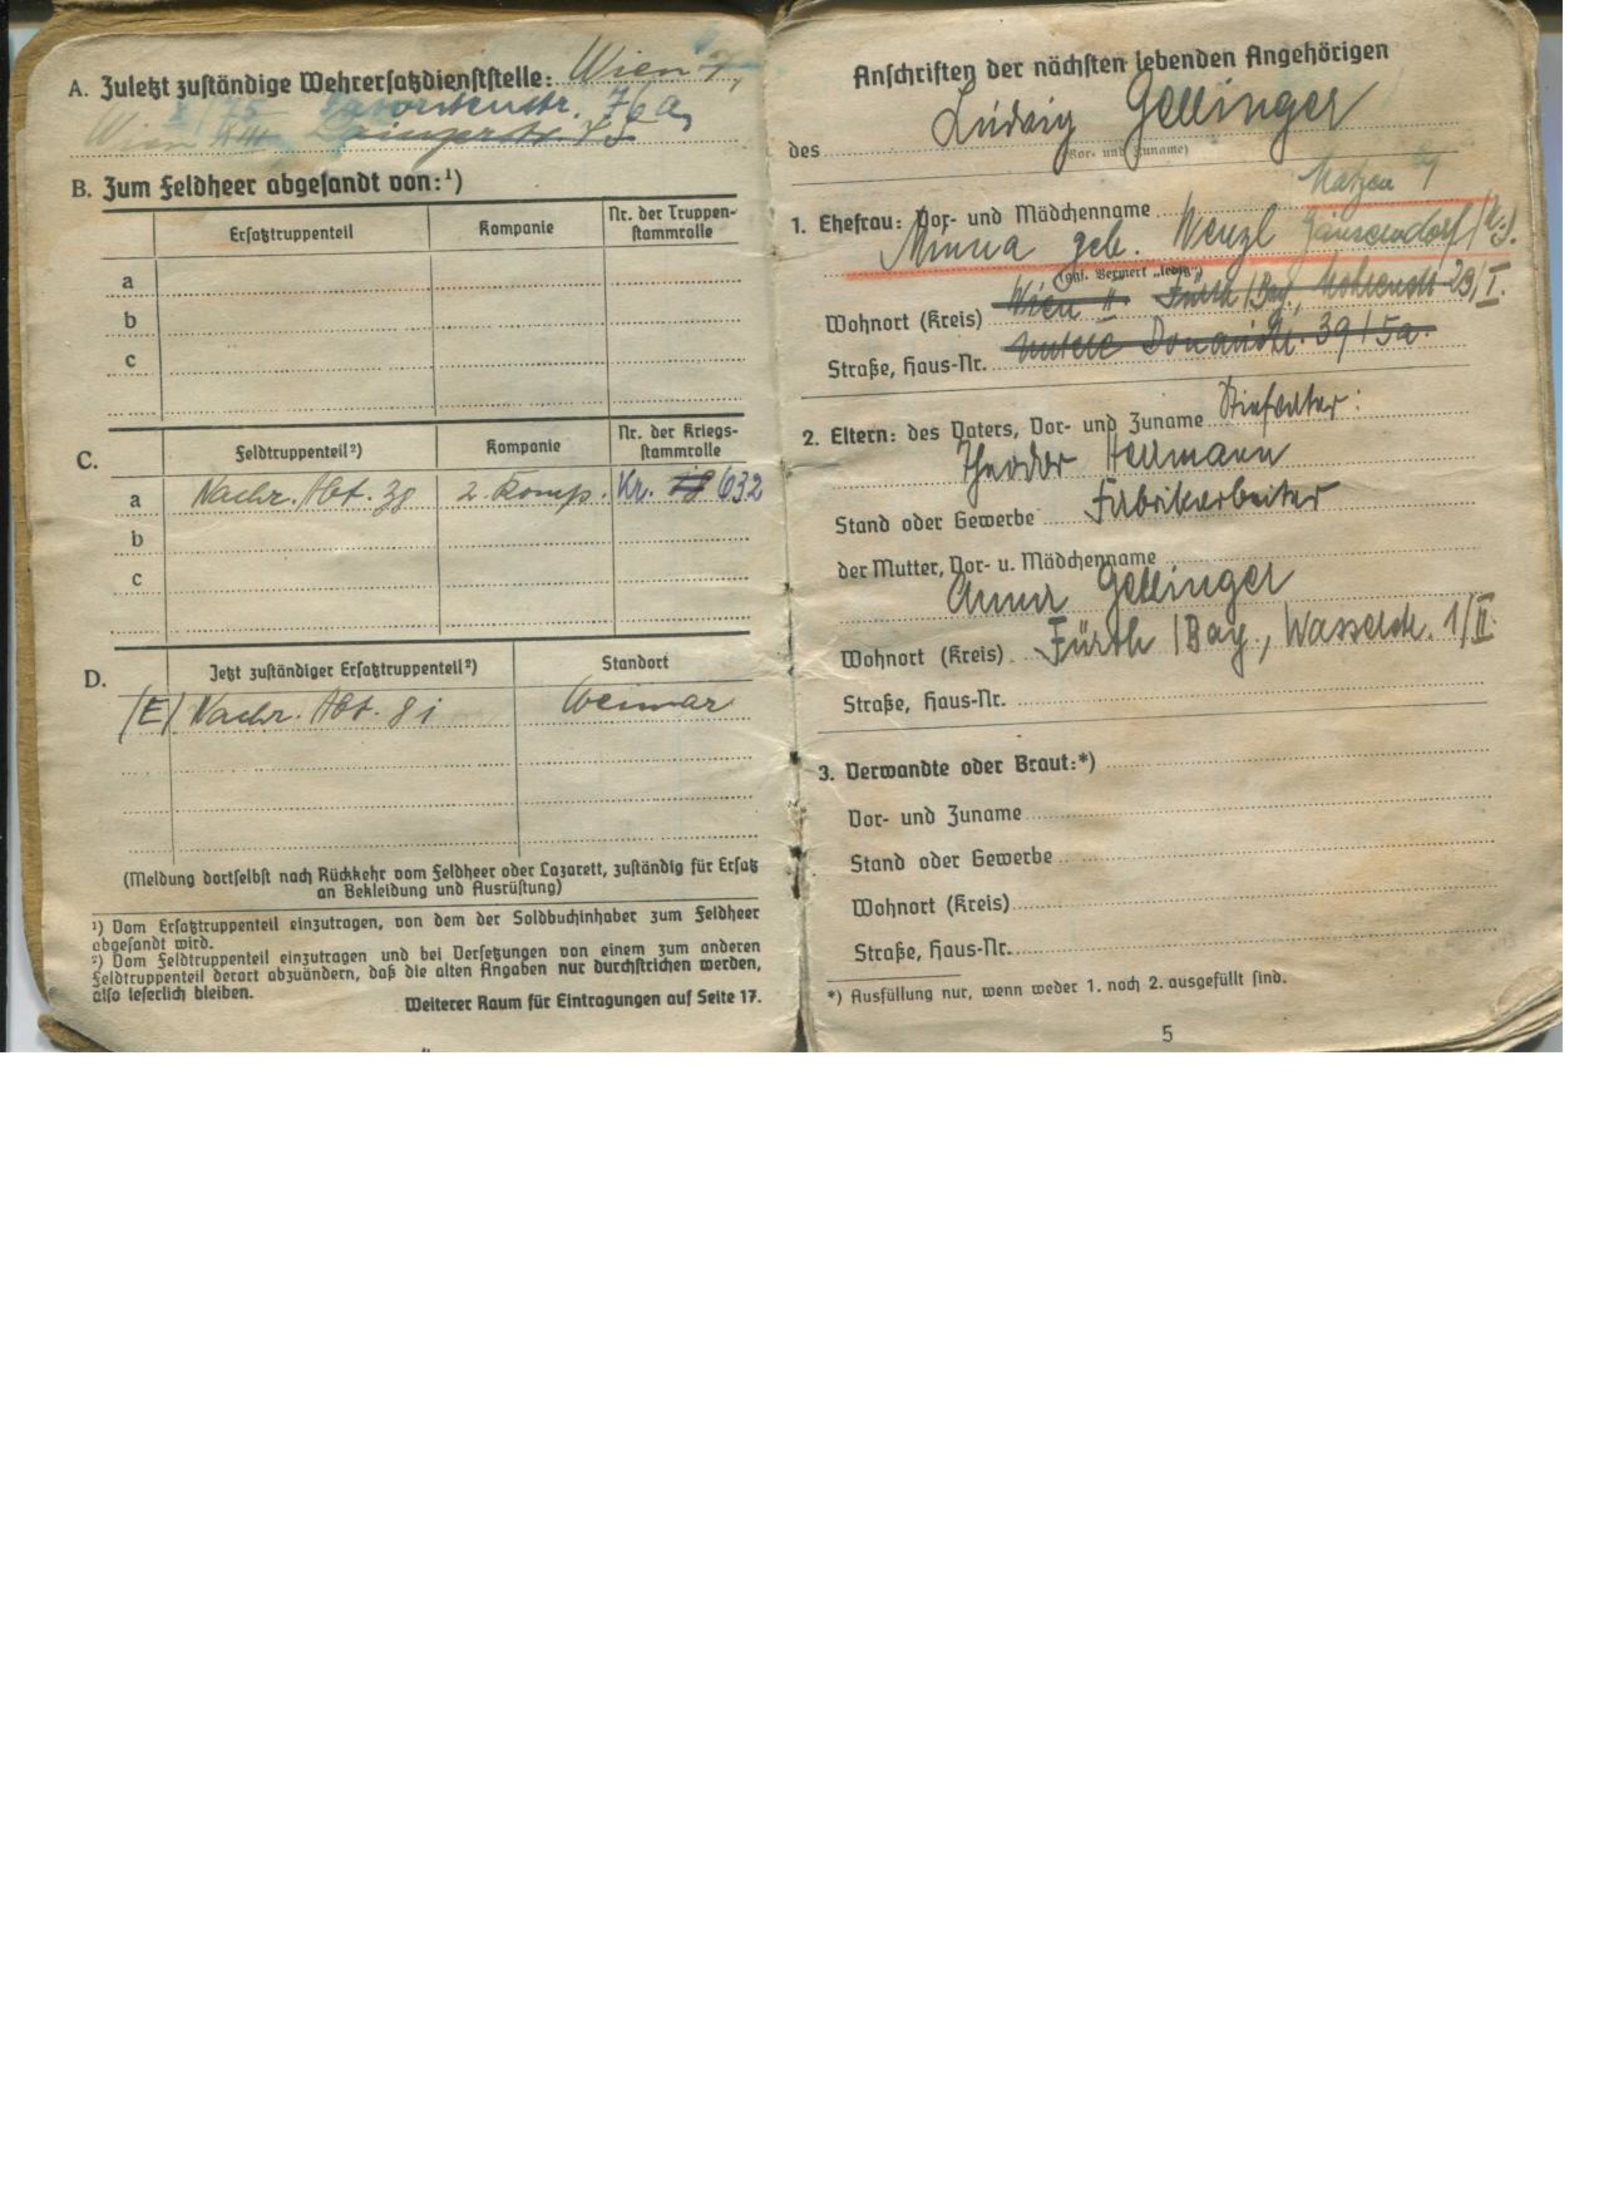 A. Zuletzt zuständige Wehrersatzdienststelle: Wien
76a,
Wien XIII 75
B. Zum Feldheer abgesandt von:¹)
Ersatztruppenteil Kompanie Nr. der Truppen-
stammrolle
a
b
c
C. Feldtruppenteil²) Kompanie Nr. der Kriegs-
stammrolle
a Nachr. Abt. 38 2. Komp. Kr. 632
b
c
D. Jetzt zuständiger Ersatztruppenteil²) Standort
(E) Nachr. Abt. 81 Weimar
(Meldung dortselbst nach Rückkehr vom Feldheer oder Lazarett, zuständig für Ersatz
an Bekleidung und Ausrüstung)
¹) Vom Ersatztruppenteil einzutragen, von dem der Soldbuchinhaber zum Feldheer
abgesandt wird.
²) Vom Feldtruppenteil einzutragen und bei Versetzungen von einem zum anderen
Feldtruppenteil derart abzuändern, daß die alten Angaben nur durchstrichen werden,
also leserlich bleiben.
Weiterer Raum für Eintragungen auf Seite 17.
Anschriften der nächsten lebenden Angehörigen
des Ludwig Gellinger
(Vor- und Zuname)
Matzen
1. Ehefrau: Vor- und Mädchenname
Minna geb. Wenzl Gänserndorf
(ggf. Vermerk „ledig")
Wohnort (Kreis) Wien II Fürth /Bay., 29/I.
Straße, Haus-Nr. Untere Donaustr. 39/5a.
2. Eltern: des Vaters, Vor- und Zuname Stiefvater:
Theodor Hellmann
Stand oder Gewerbe Fabrikarbeiter
der Mutter, Vor- u. Mädchenname
Anna Gellinger
Wohnort (Kreis) Fürth /Bay., 1/II.
Straße, Haus-Nr.
3. Verwandte oder Braut:*)
Vor- und Zuname
Stand oder Gewerbe
Wohnort (Kreis)
Straße, Haus-Nr.
*) Ausfüllung nur, wenn weder 1. noch 2. ausgefüllt sind.
5